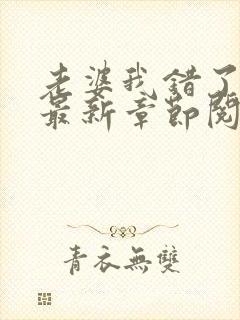 老婆我错了
最新章節閱
青衣無雙